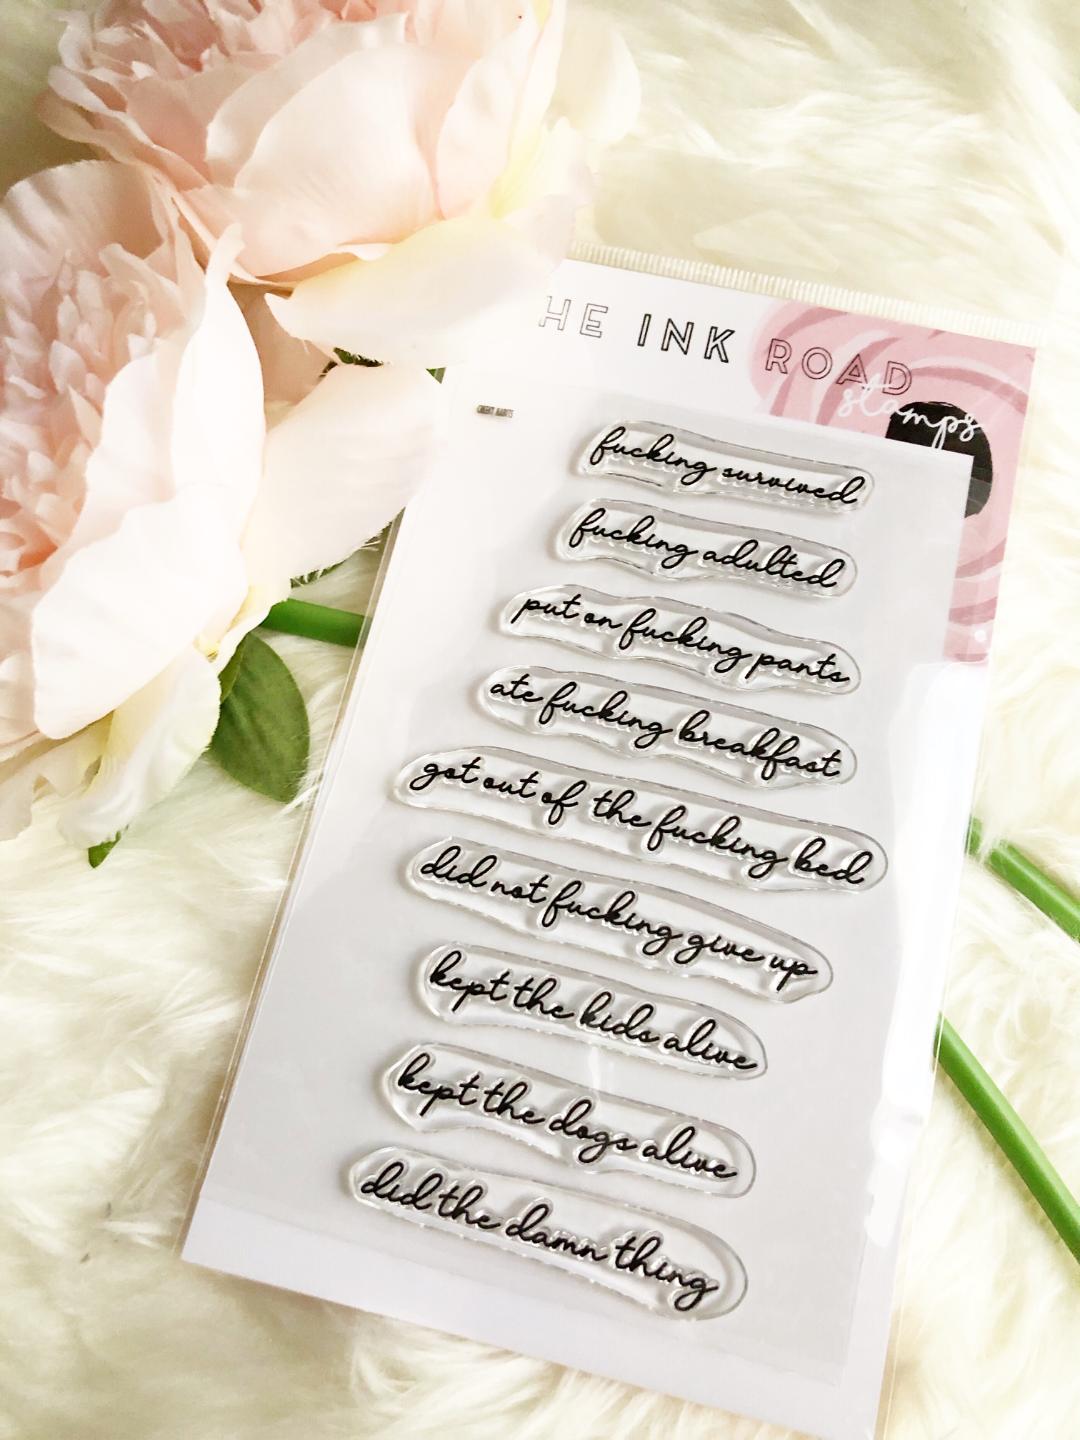 HE INK ROAD
stamps
fucking survived
fucking adulted
put on fucking pants
ate fucking breakfast
got out of the fucking bed
did not fucking give up
kept the kids alive
kept the dogs alive
did the damn thing